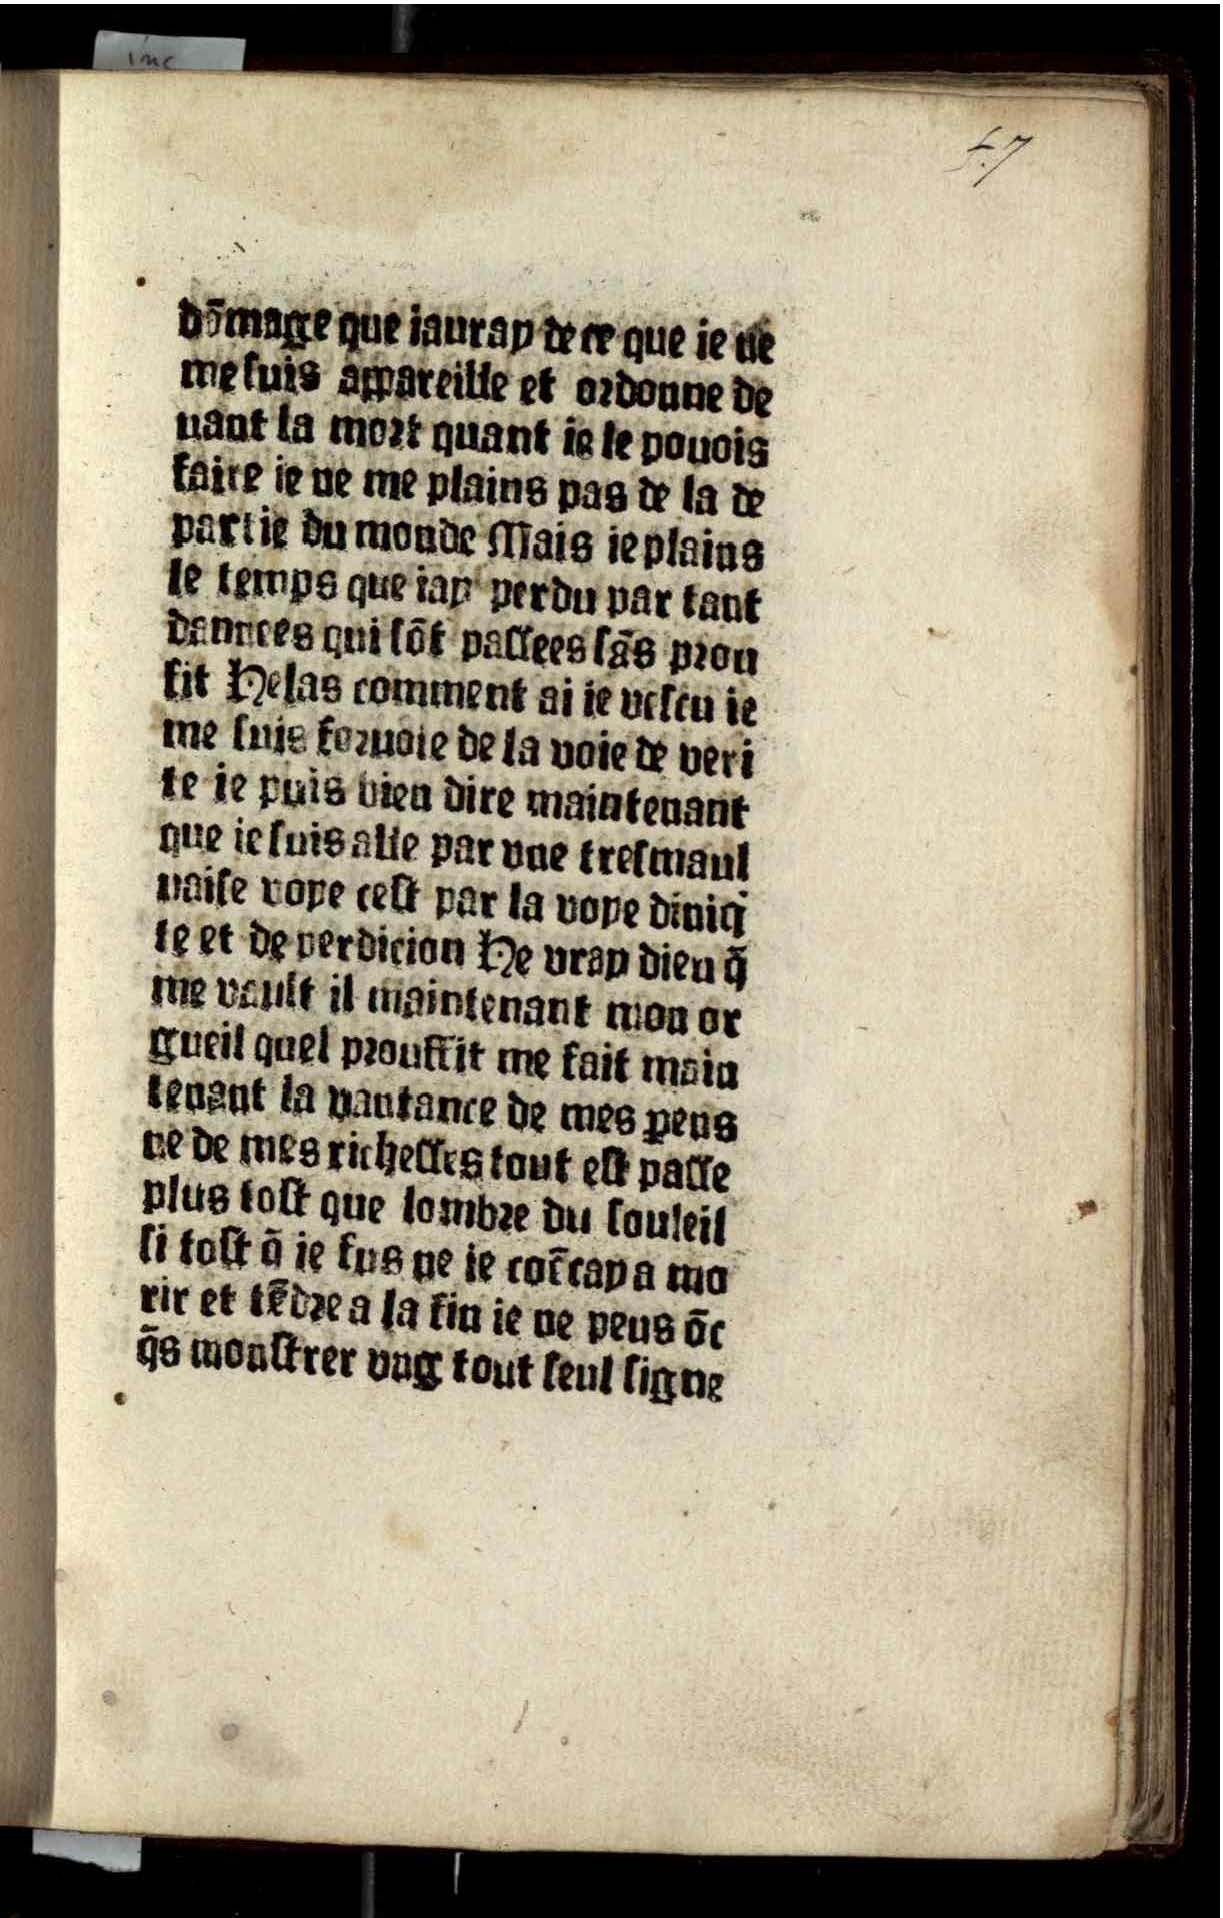 inc
47
dōmage que iauray de ce que ie ne
me suis appareille et ordonne de
uant la mort quant ie le pouois
faire ie ne me plains pas de la de
partie du monde Mais ie plains
le temps que iay perdu par tant
dannees qui sōt passees sās prou
fit Helas comment ai ie vescu ie
me suis foruoie de la voie de veri
te ie puis bien dire maintenant
que ie suis alle par vne tresmaul
uaise voye cest par la voye diniq̇
te et de perdicion He vray dieu q̄
me vault il maintenant mon or
gueil quel prouffit me fait main
tenant la vantance de mes ꝑens
ne de mes richesses tout est passe
plus tost que lombre du souleil
si tost q̄ ie fus ne ie cōēcay a mo
rir et tēdre a la fin ie ne peus ōc
q̄s monstrer vng tout seul signe